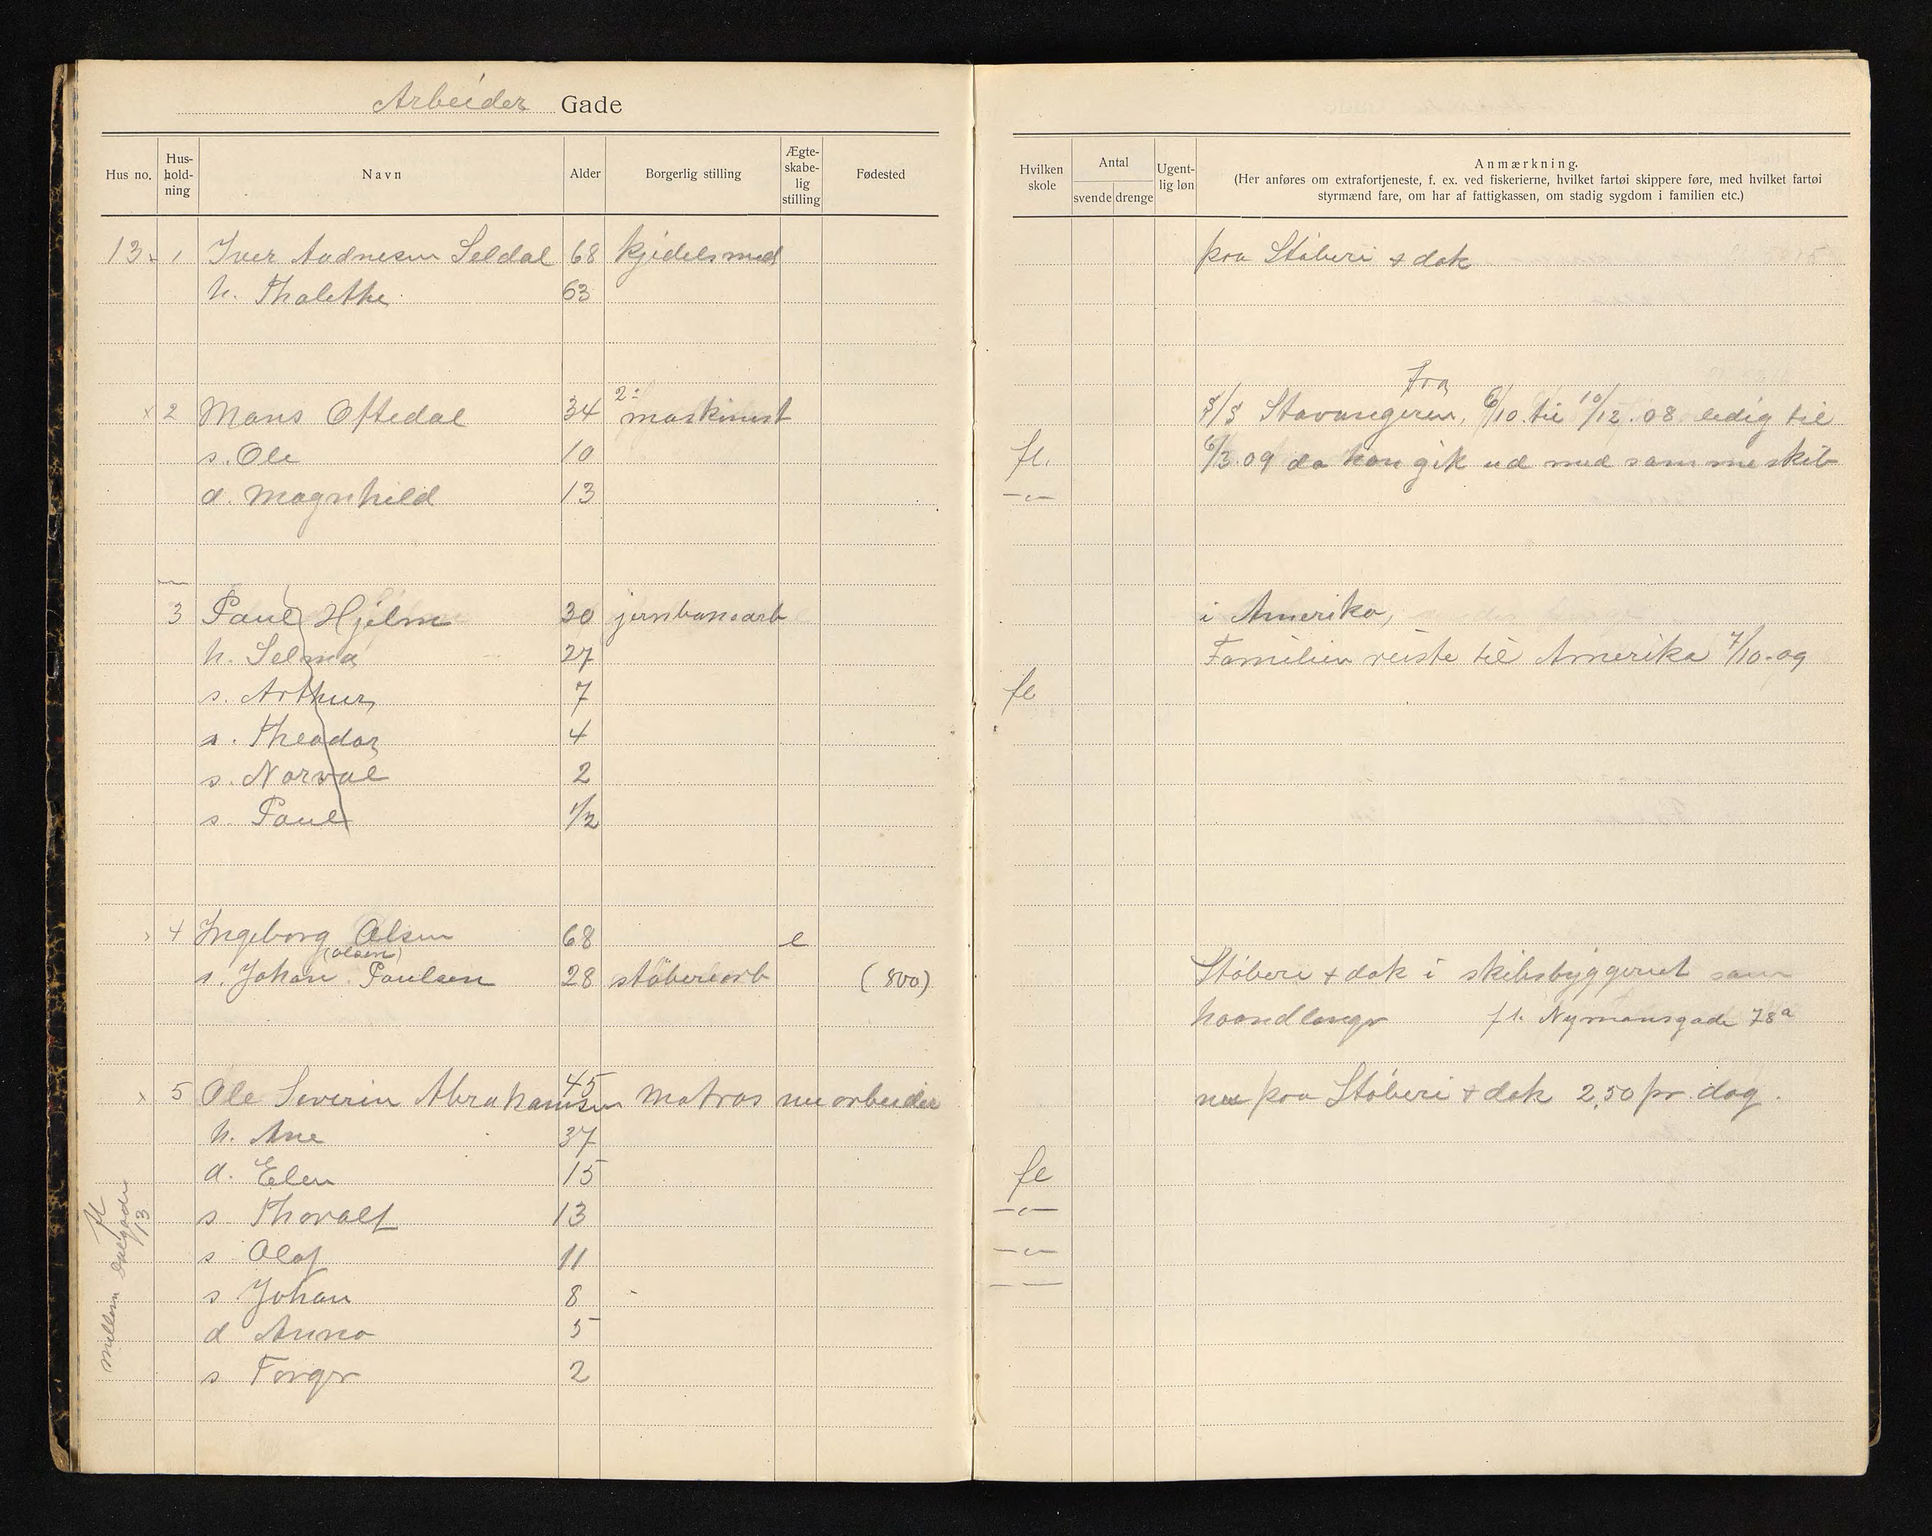 Arbeider Gade
Hus no. Hus-holdning Navn Alder Borgerlig stilling Ægte-skabe-lig stilling Fødested Hvilken skole Antal svende drenge Ugent-lig løn Anmærkning.
(Her anføres om extrafortjeneste, f. ex. ved fiskerierne, hvilket fartøi skippere føre, med hvilket fartøi
styrmænd fare, om har af fattigkassen, om stadig sygdom i familien etc.)
13. 1 Iver Audnesen Seldal 68 kjedelsmed paa Støberi & dok
h. Thalethe 63
x 2 Mons Oftedal 34 2: maskinist S/S Stavangeren, fra 6/10 til 10/12.08 ledig til
s. Ole 10 fl. 6/3 09 da han gik ud med samme skib
d. Magnhild 13 —"—
3 Paul Hjelm 30 jernbanearb i Amerika,
h. Selma 27 Familien reiste til Amerika 7/10.09
s. Arthur 7 fl
s. Theodor 4
s. Norval 2
s Paul 1/2
4 Ingeborg Olsen 68 e
s. Johan Paulsen (Olsen) 28 støberiarb (800) Støberi & dok i skibsbyggeriet som
haandlanger fl. Nymansgade 78a
x 5 Ole Severin Abrahamsen 45 Matros nu arbeider nu paa Støberi & dok 2,50 pr. dag.
h. Ane 37
d. Elen 15 fl
s Thoralf 13 —"—
s Olaf 11 —"—
s Johan 8 — —
d Anna 5
s Torger 2
fl
13